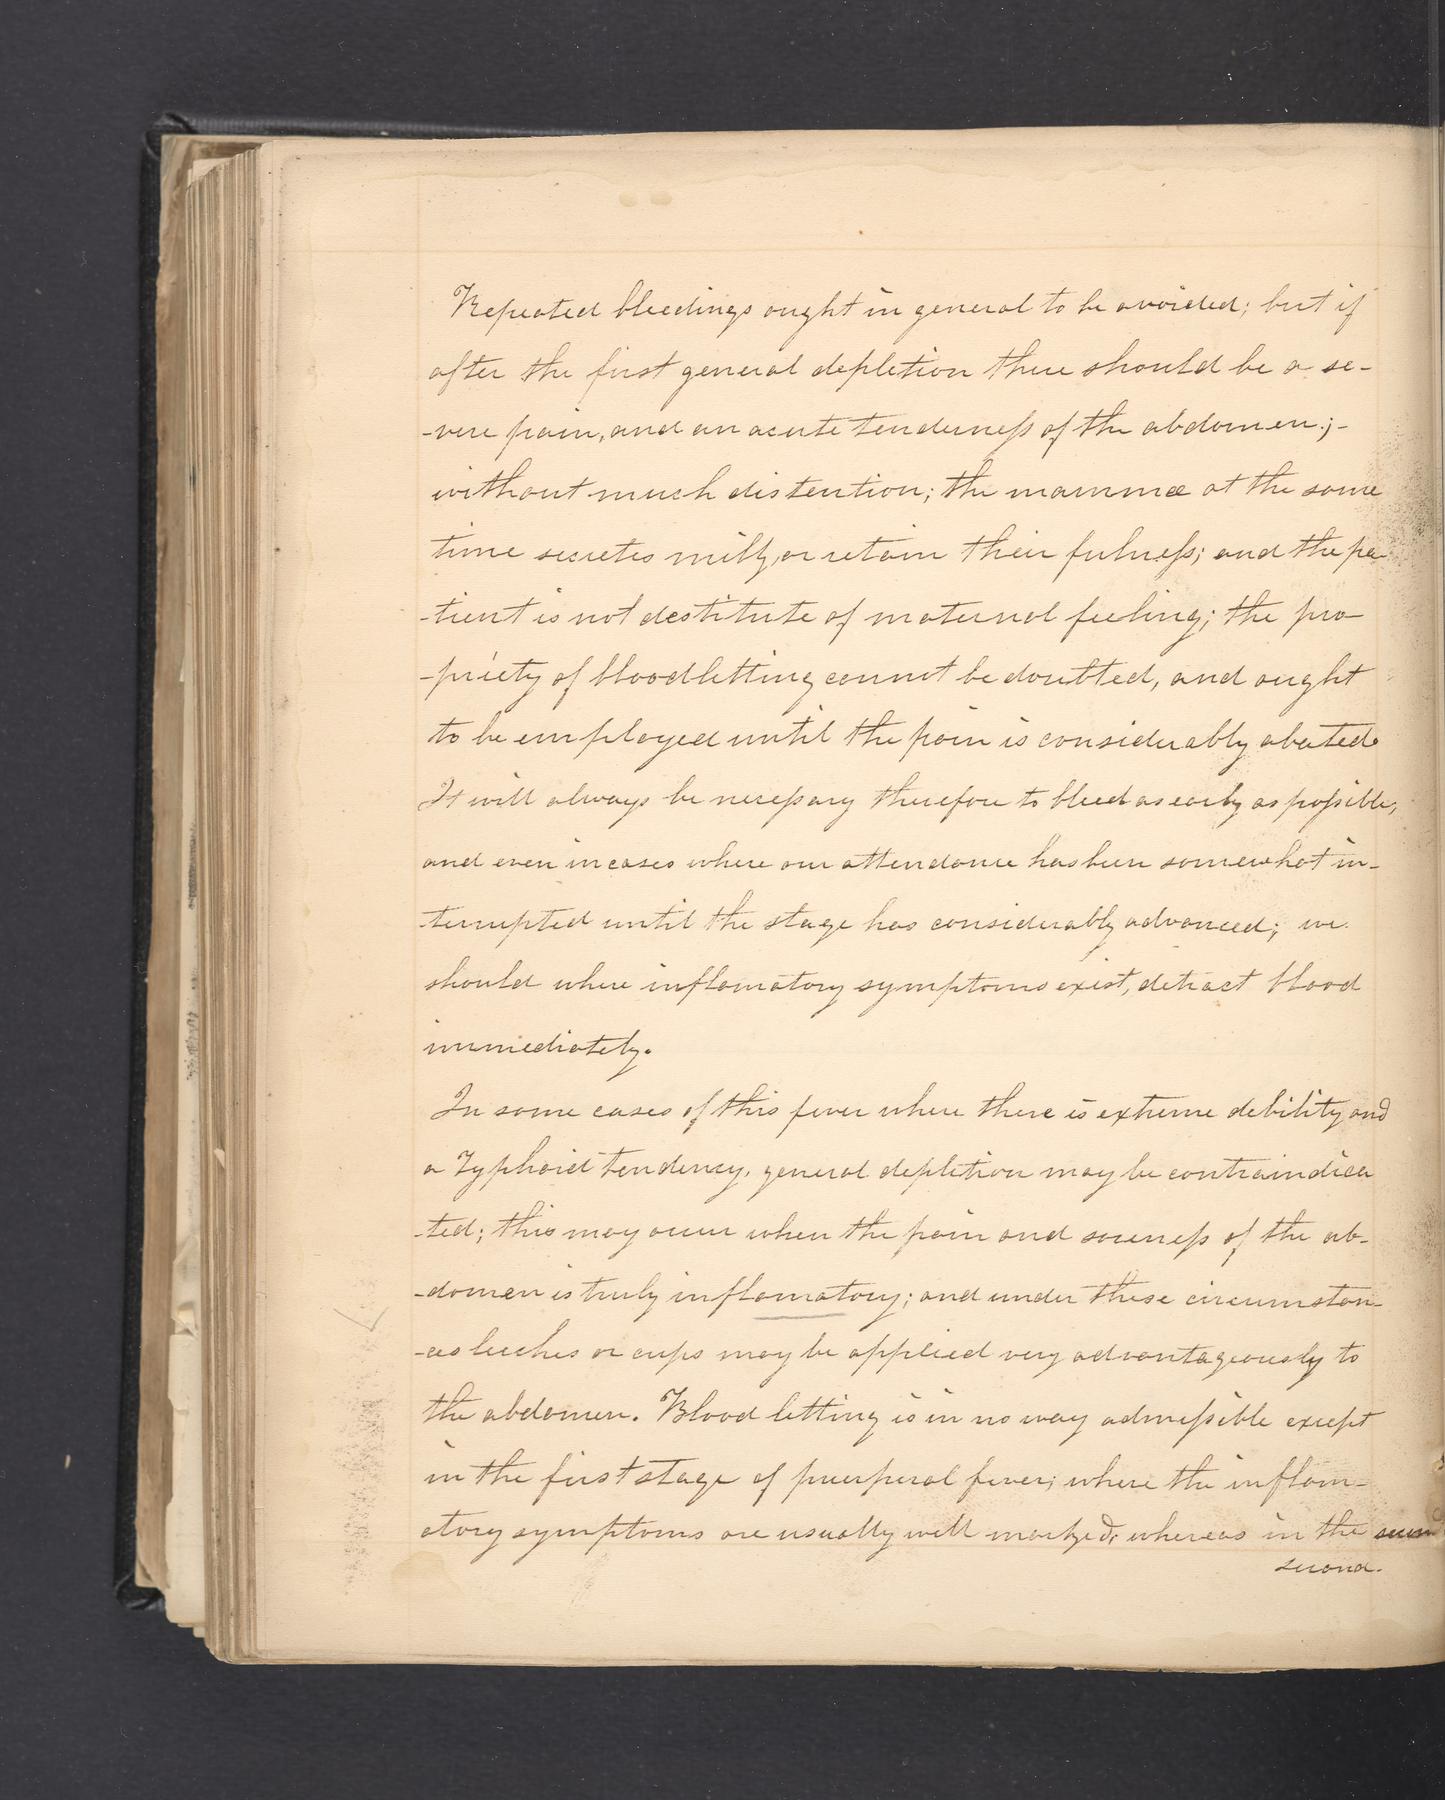 Repeated bleedings ought in general to be avoided; but if
after the first general depletion there should be a se-
-vere pain, and an acute tenderness of the abdomen;-
without much distention; the mammæ at the same
time secretes milk, or retain their fulness; and the pa
-tient is not destitute of maternal feeling; the pro-
-priety of bloodletting cannot be doubted, and ought
to be employed until the pain is considerably abated.
It will always be necessary therefore to bleed as early as possible,
and even in cases where our attendance has been somewhat in-
-terrupted until the stage has considerably advanced; we
should where inflamatory symptoms exist, detract blood
immediately.
In some cases of this fever where there is extreme debility and
a Typhoid tendency, general depletion may be contraindica
-ted; this may occur when the pain and soreness of the ab-
-domen is truly inflamatory; and under these circumstan-
-ces leeches or cups may be applied very advantageously to
the abdomen. Blood letting is in no way admissible except
in the first stage of puerperal fever; where the inflam-
atory symptoms are usually well marked; whereas in the
second.